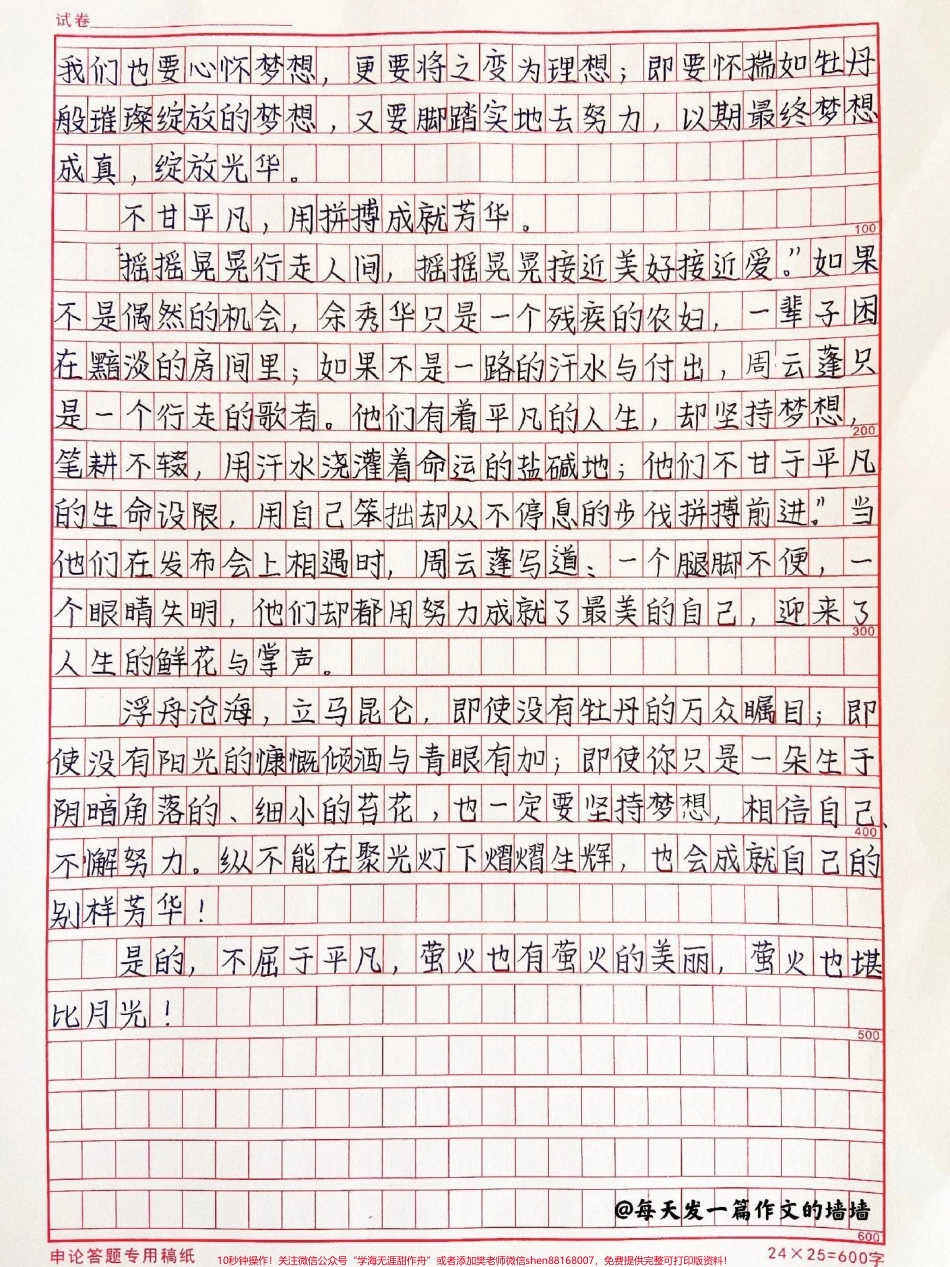 试卷
我们也要心怀梦想，更要将之变为理想；即要怀揣如牡丹
般璀璨绽放的梦想，又要脚踏实地去努力，以期最终梦想
成真，绽放光华。
不甘平凡，用拼搏成就芳华。
100
“摇摇晃晃行走人间，摇摇晃晃接近美好接近爱。”如果
不是偶然的机会，余秀华只是一个残疾的农妇，一辈子困
在黯淡的房间里；如果不是一路的汗水与付出，周云蓬只
是一个行走的歌者。他们有着平凡的人生，却坚持梦想，
200
笔耕不辍，用汗水浇灌着命运的盐碱地；他们不甘于平凡
的生命设限，用自己笨拙却从不停息的步伐拼搏前进。”当
他们在发布会上相遇时，周云蓬写道：一个腿脚不便，一
个眼睛失明，他们却都用努力成就了最美的自己，迎来了
300
人生的鲜花与掌声。
浮舟沧海，立马昆仑，即使没有牡丹的万众瞩目；即
使没有阳光的慷慨倾洒与青眼有加；即使你只是一朵生于
阴暗角落的、细小的苔花，也一定要坚持梦想，相信自己、
400
不懈努力。纵不能在聚光灯下熠熠生辉，也会成就自己的
别样芳华！
是的，不屈于平凡，萤火也有萤火的美丽，萤火也堪
比月光！
500
@每天发一篇作文的墙墙
600
申论答题专用稿纸
10秒钟操作！关注微信公众号“学海无涯甜作舟”或者添加樊老师微信shen88168007，免费提供完整可打印版资料！
24×25=600字